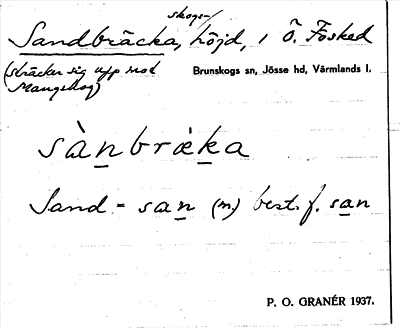 skogs-/
Sandbräcka, höjd, i Ö. Fosked
(sträcker sig upp mod
Mangskog)
Brunskogs sn, Jösse hd, Värmlands l.
sànbræka
Sand- = san (m) best. f. san
P. O. GRANÉR 1937.